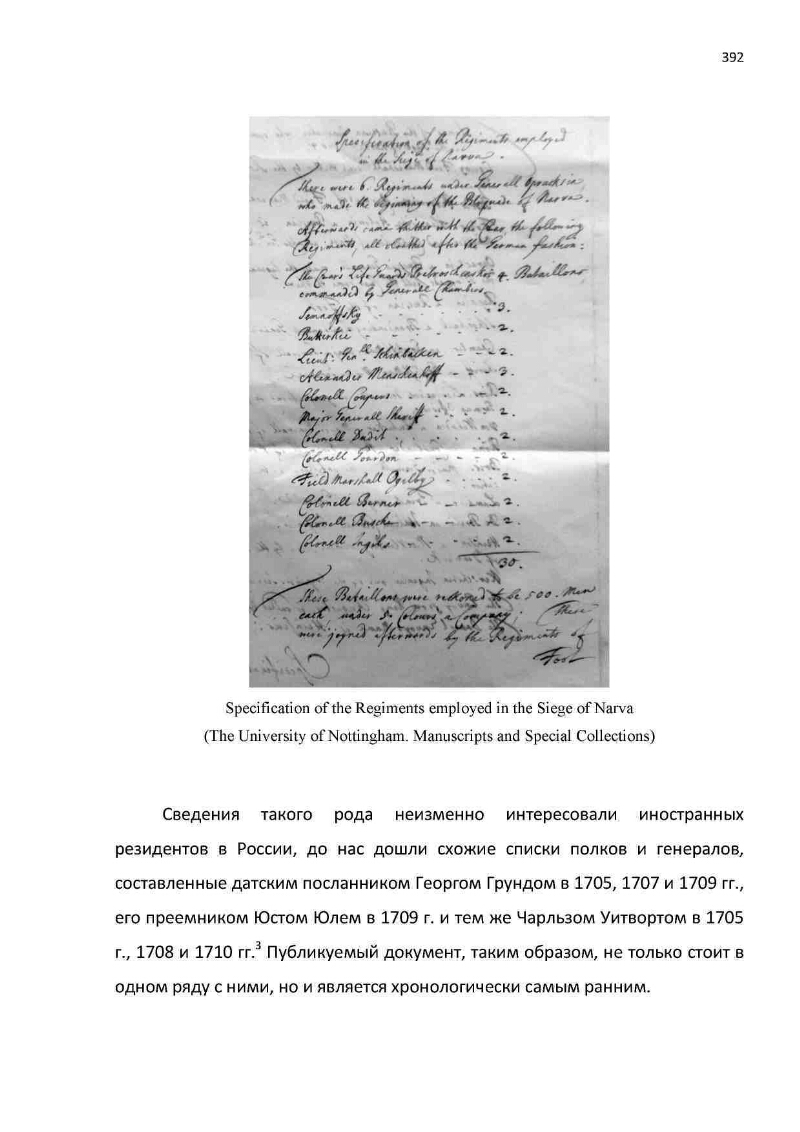 392
Specification of the Regiments employed
in the Siege of Narva.
There were 6. Regiments under Generall Opracksin,
who made the beginning of the Bloquade of Narva.
Afterwards came thither with the Czar, the following
Regiments, all cloathed after the German fashion:
The Czar's Life Guards Prebroschenskoi 4. Bataillons
commanded by Generall Chambers.
Semnoffsky 3.
Butterkie 2.
Lieut: Genll. Schinbecken 2.
Alexander Menschenkoff 3.
Colonell Coupers 2.
Major Generall Sheriff 2.
Colonell 2.
Colonell Gourdon 2.
Field Marshall Ogilby 2.
Colonell Berner 2.
Colonell Busche 2.
Colonell Inglis 2.
30.
These Bataillons were reckoned to be 500. Men
each, under 5. Colours a Company; These
were joyned afterwards by the Regiments of
Foot
Specification of the Regiments employed in the Siege of Narva
(The University of Nottingham. Manuscripts and Special Collections)
Сведения такого рода неизменно интересовали иностранных
резидентов в России, до нас дошли схожие списки полков и генералов,
составленные датским посланником Георгом Грундом в 1705, 1707 и 1709 гг.,
его преемником Юстом Юлем в 1709 г. и тем же Чарльзом Уитвортом в 1705
г., 1708 и 1710 гг.3 Публикуемый документ, таким образом, не только стоит в
одном ряду с ними, но и является хронологически самым ранним.